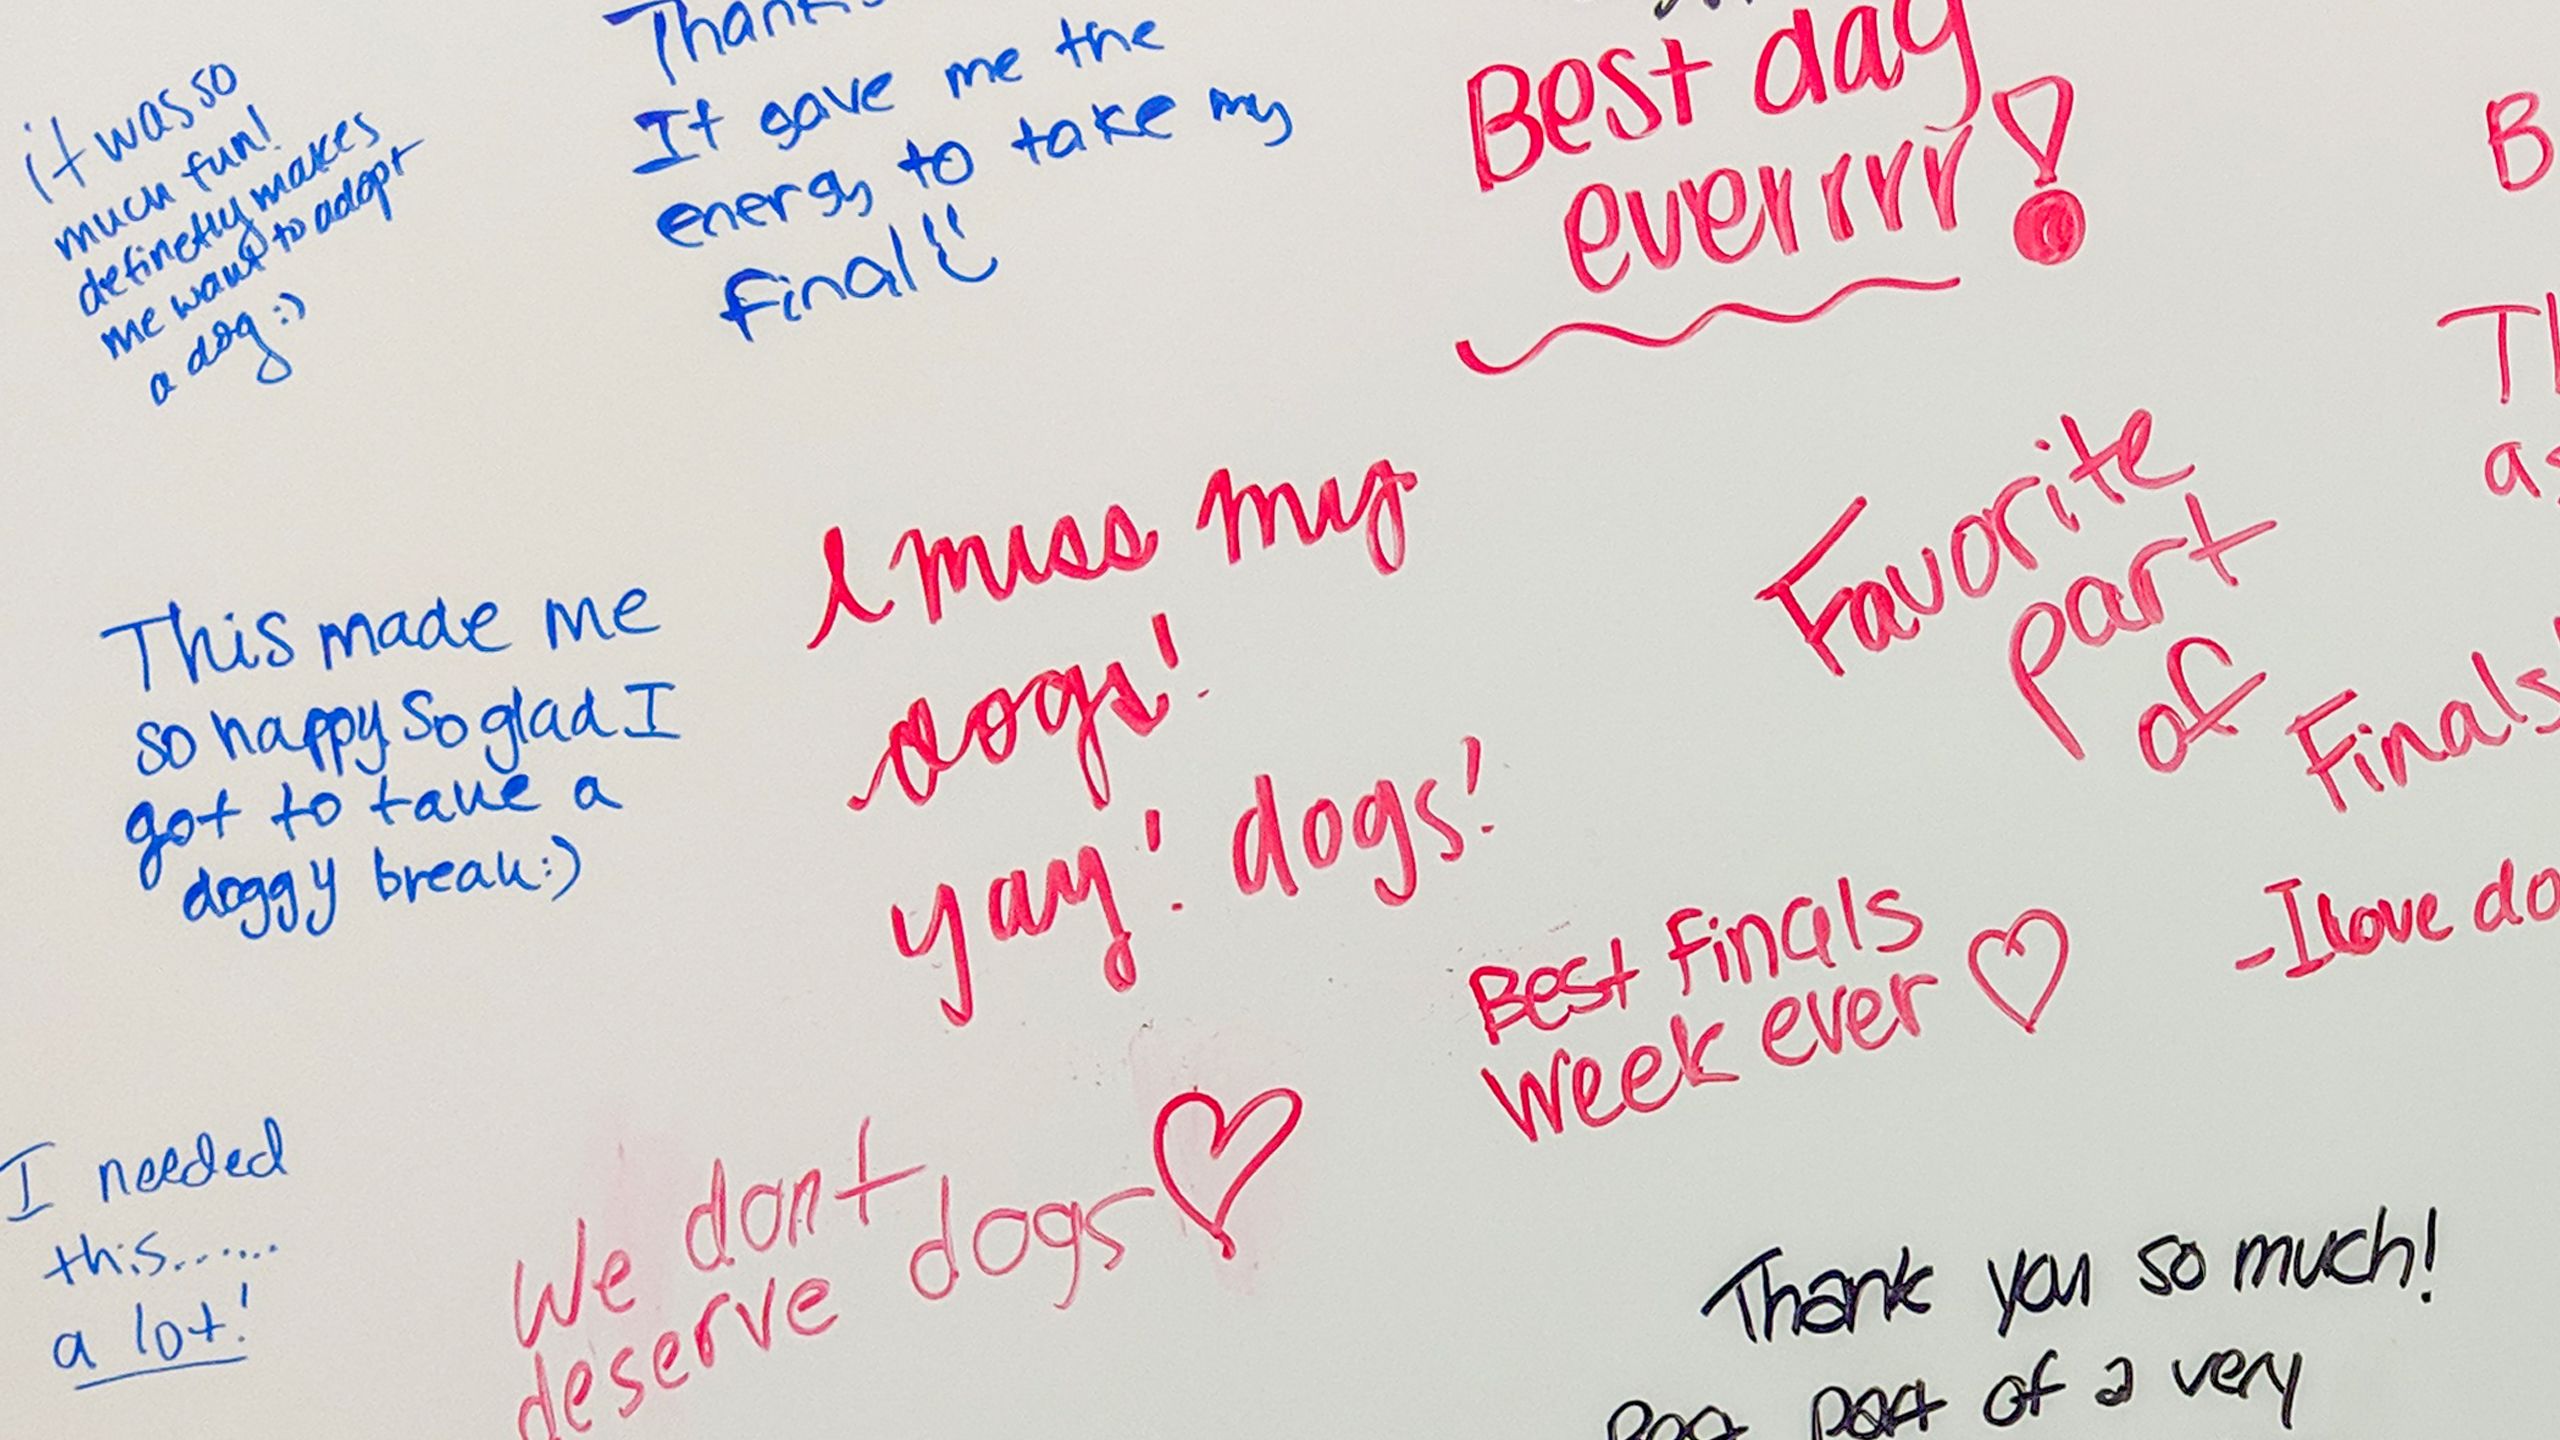 it was so
much fun!
definetly makes
me want to adopt
a dog :)
Thanks
It gave me the
energy to take my
final!
Best day
everrrrr!
B
Th
as
This made me
so happy So glad I
got to take a
doggy break :)
I miss my
dogs!
yay! dogs!
Favorite
part
of
Finals
-I love do
Best Finals
Week ever
I needed
this......
a lot!
We dont
deserve dogs
Thank you so much!
part of a very